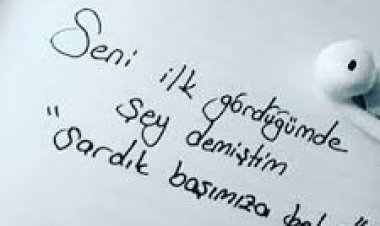 Seni ilk gördüğümde
şey demiştim
"Sardık başımıza